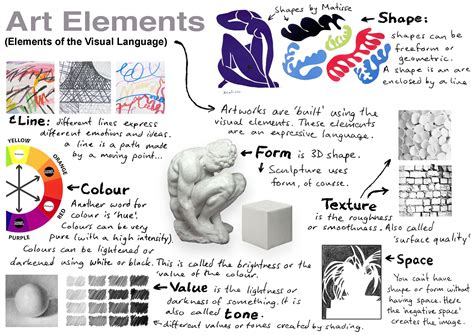 Art Elements
(Elements of the Visual Language)
Shapes by Matisse
Shape:
shapes can be
freeform or
geometric.
A shape is an are
enclosed by a line
Artworks are 'built' using the
visual elements. These elements
are an expressive language.
Line: different lines express
different emotions and ideas.
a line is a path made
by a moving point...
YELLOW
ORANGE
RED
PURPLE
Form is 3D shape.
Sculpture uses
form, of course.
Colour
Another word for
colour is 'hue'.
Colours can be very
pure (with a high intensity).
Colours can be lightened or
darkened using white or black. This is called the brightness or the
'value of the colour.
Texture
is the roughness
or smoothness. Also called
'surface quality'
Value is the lightness or
darkness of something. It is
also called tone.
different values or tones created by shading.
Space
You can't have
shape or form without
having space. Here
the 'negative space'
creates the image.